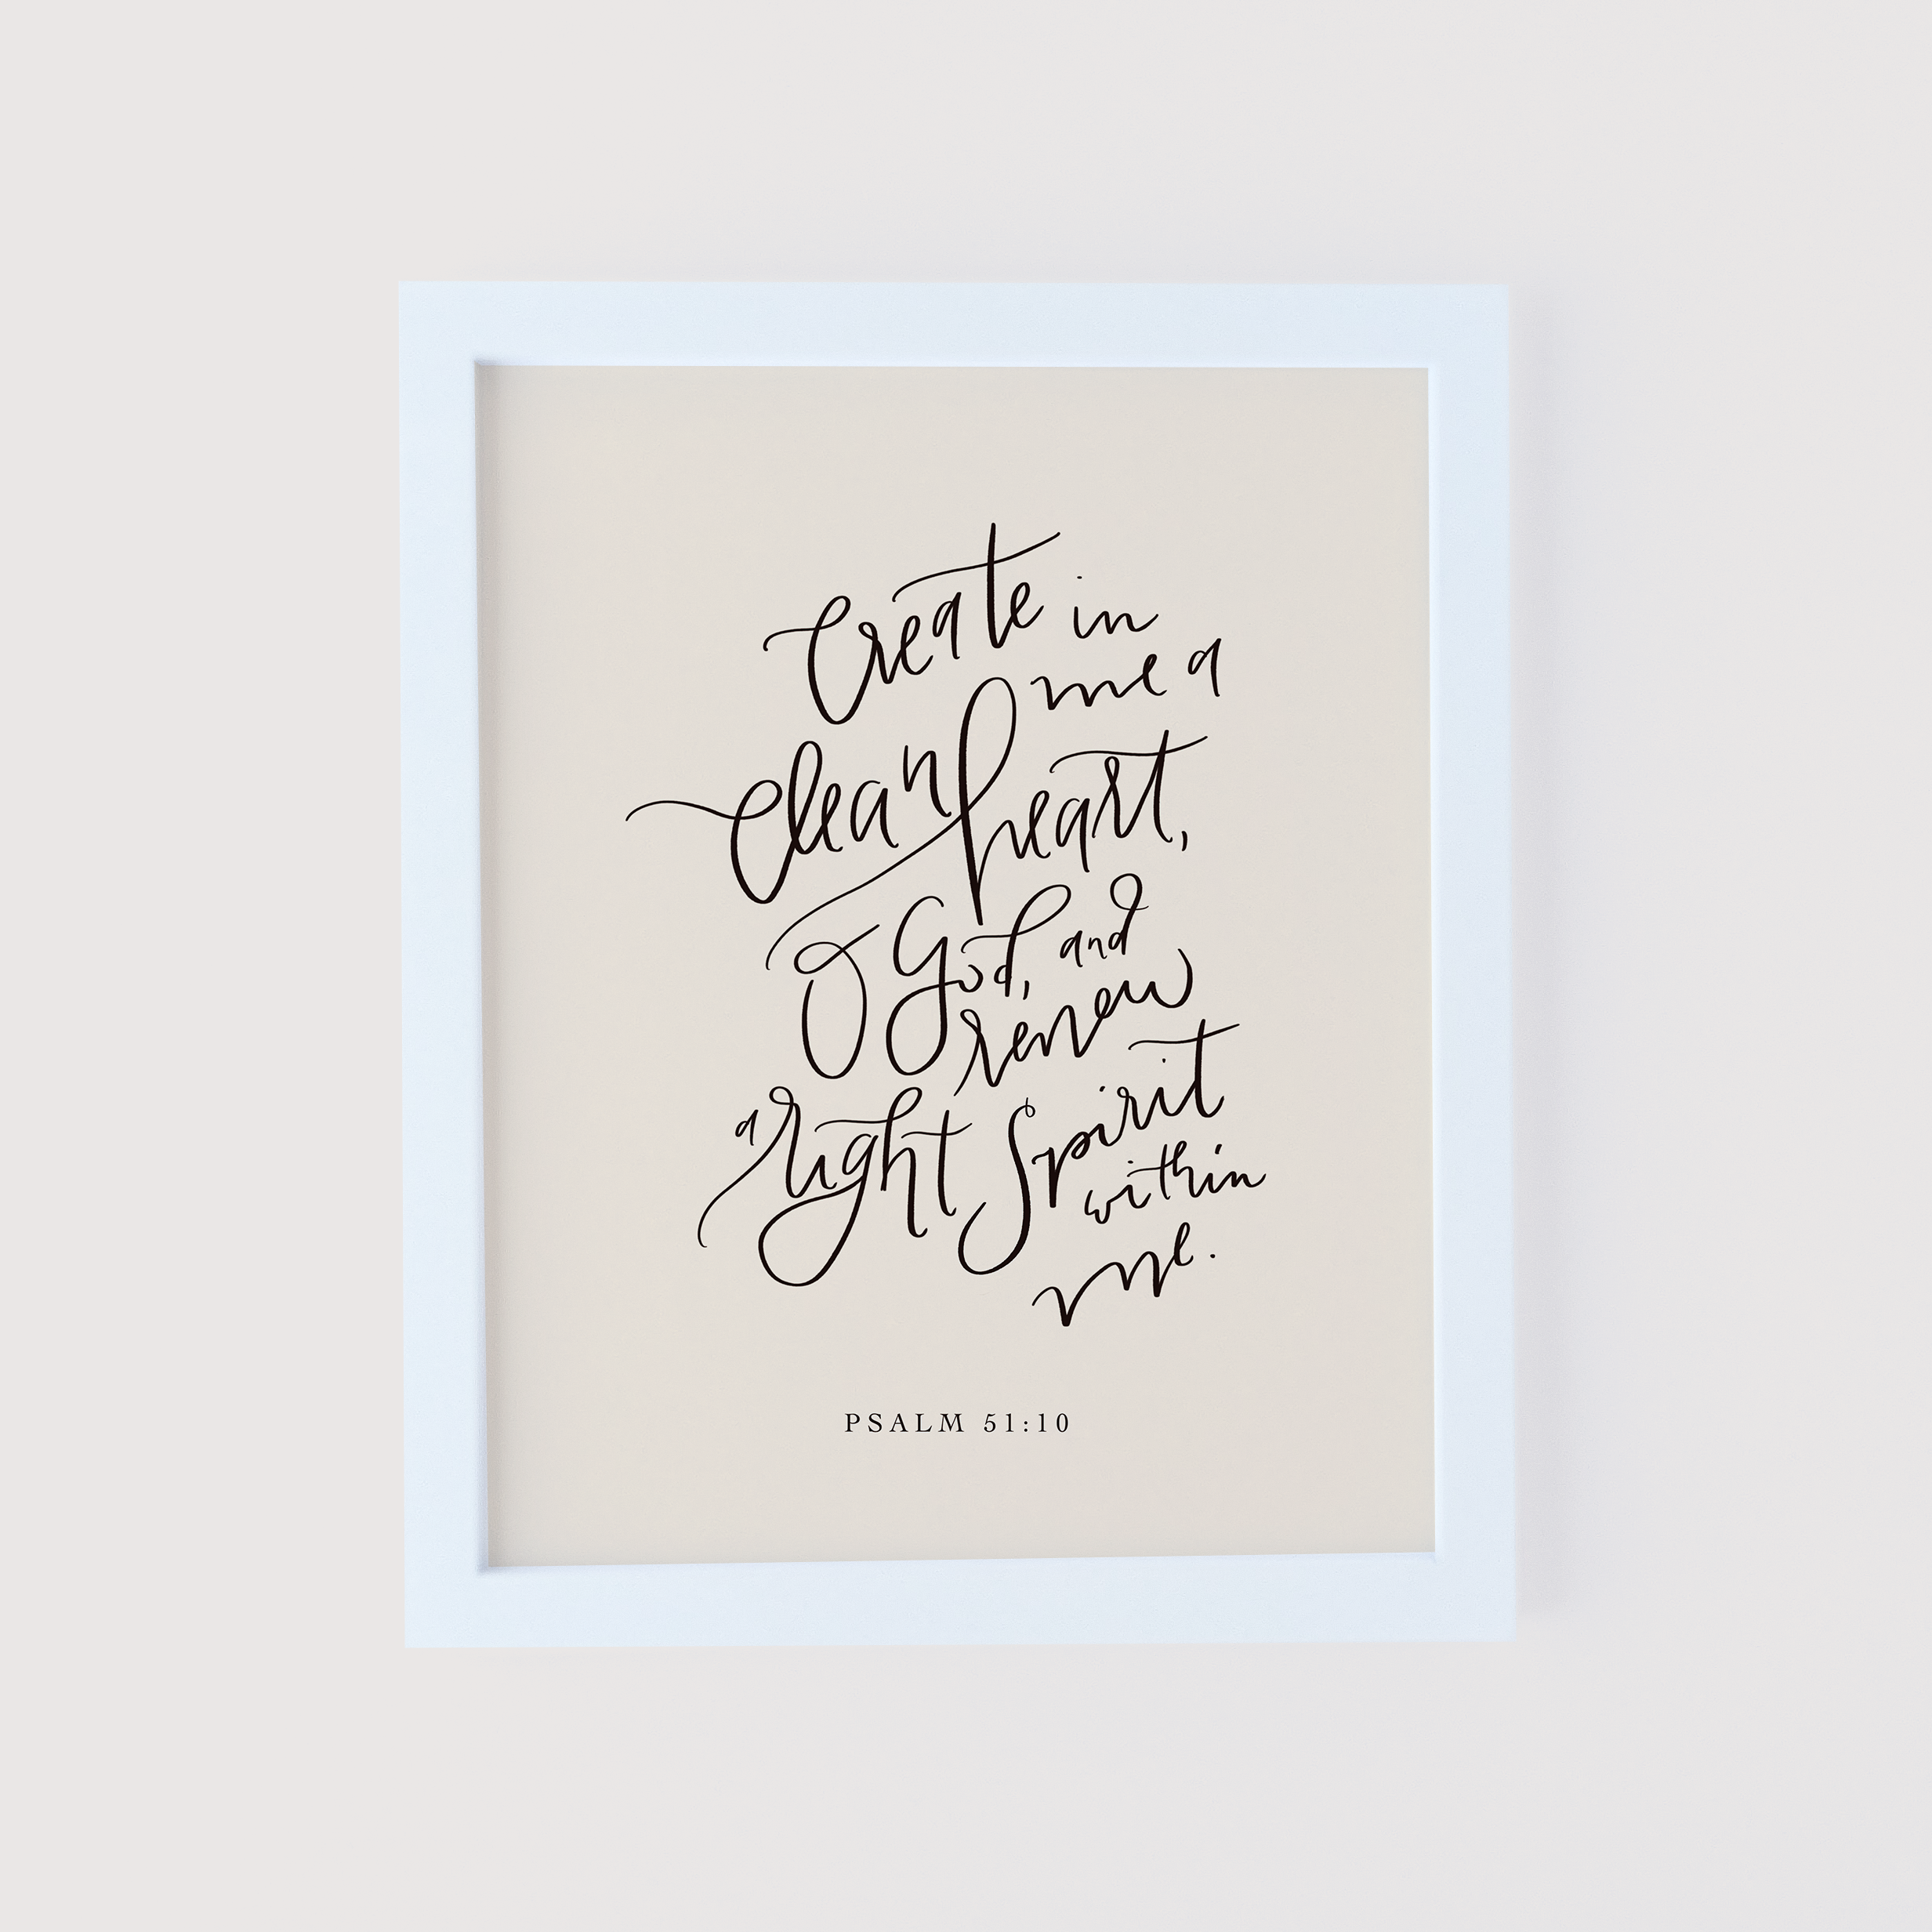 Create in
me a
clean heart,
O God, and
renew
a right Spirit
within
me.
PSALM 51:10